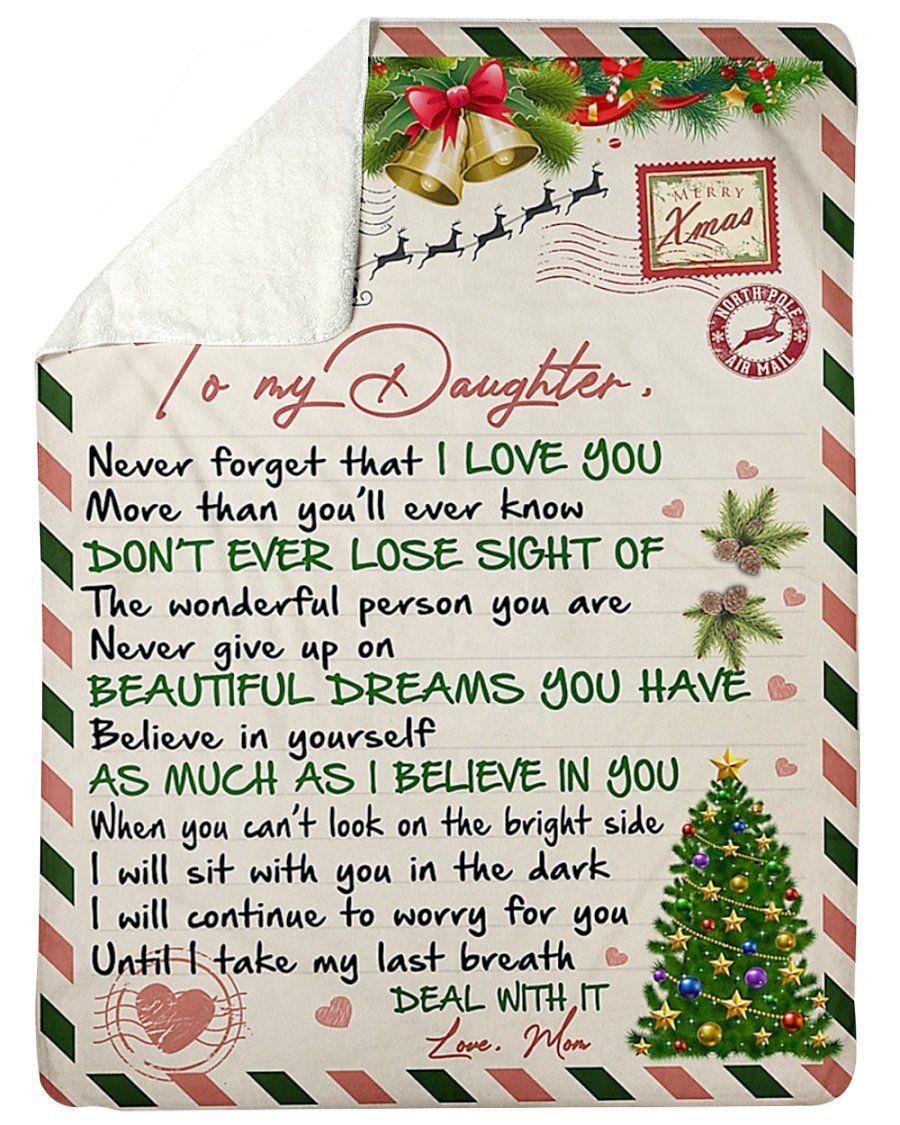 MERRY
Xmas
NORTH POLE
AIR MAIL
To my Daughter,
Never forget that I LOVE YOU
More than you'll ever know
DON'T EVER LOSE SIGHT OF
The wonderful person you are
Never give up on
BEAUTIFUL DREAMS YOU HAVE
Believe in yourself
AS MUCH AS I BELIEVE IN YOU
When you can't look on the bright side
I will sit with you in the dark
I will continue to worry for you
Until I take my last breath
DEAL WITH IT
Love, Mom